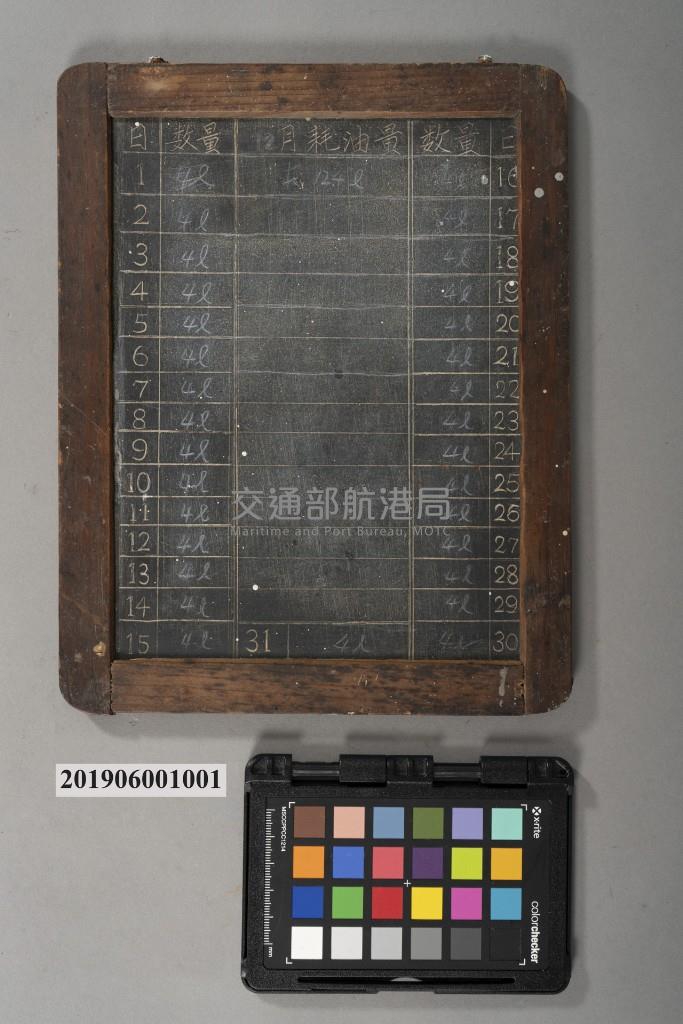 日 数量 12月耗油量 数量 日
1 4l 共 124l 4l 16
2 4l 4l 17
3 4l 4l 18
4 4l 4l 19
5 4l 4l 20
6 4l 4l 21
7 4l 4l 22
8 4l 4l 23
9 4l 4l 24
10 4l 4l 25
11 4l 4l 26
12 4l 4l 27
13 4l 4l 28
14 4l 4l 29
15 4l 31 4l 4l 30
交通部航港局
Maritime and Port Bureau, MOTC
201906001001
MSCCPPCC1214
x-rite
colorchecker
mm